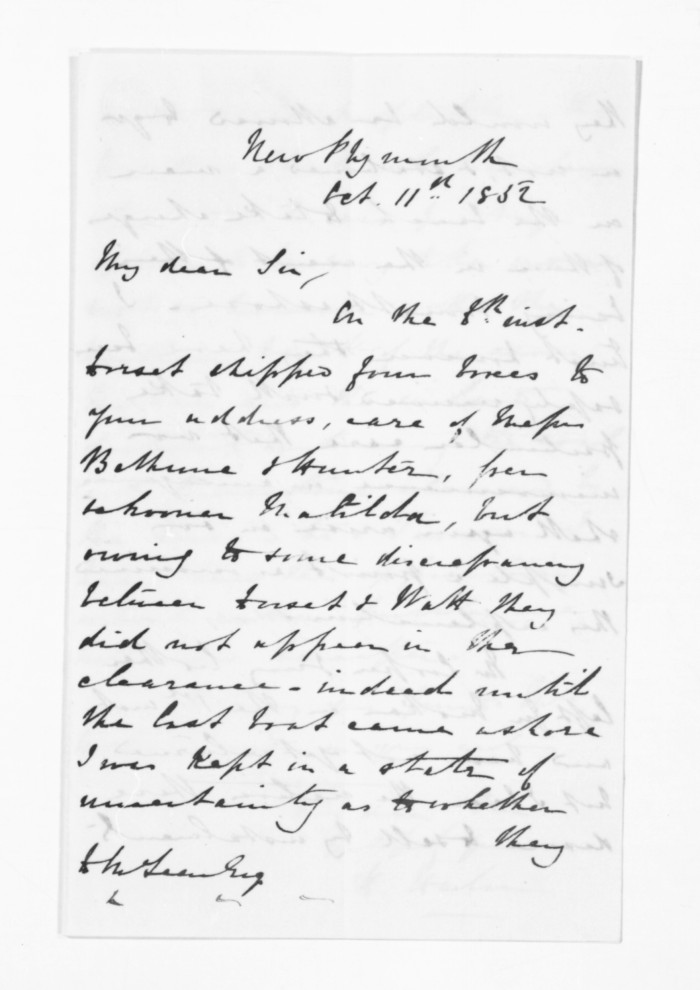 New Plymouth
Oct. 11th 1852
My dear Sir,
On the 8th inst.
Dorset shipped four boxes to
your address, care of Messrs
Bethune & Hunter, per
schooner Matilda, but
owing to some discrepancy
between Dorset & Watt they
did not appear in the
clearance - indeed until
the last boat came ashore
I was kept in a state of
uncertainty as to whether
they
D McLean Esq